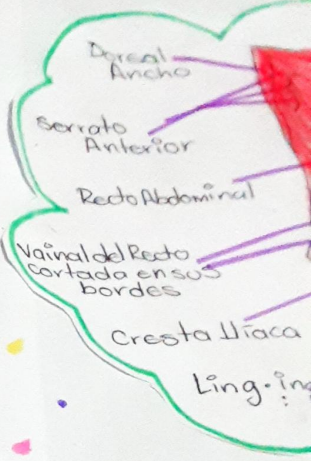 Dorsal
Ancho
Serrato
Anterior
Recto Abdominal
Vainal del Recto
cortada en sus
bordes
Cresta Ilíaca
Ling.